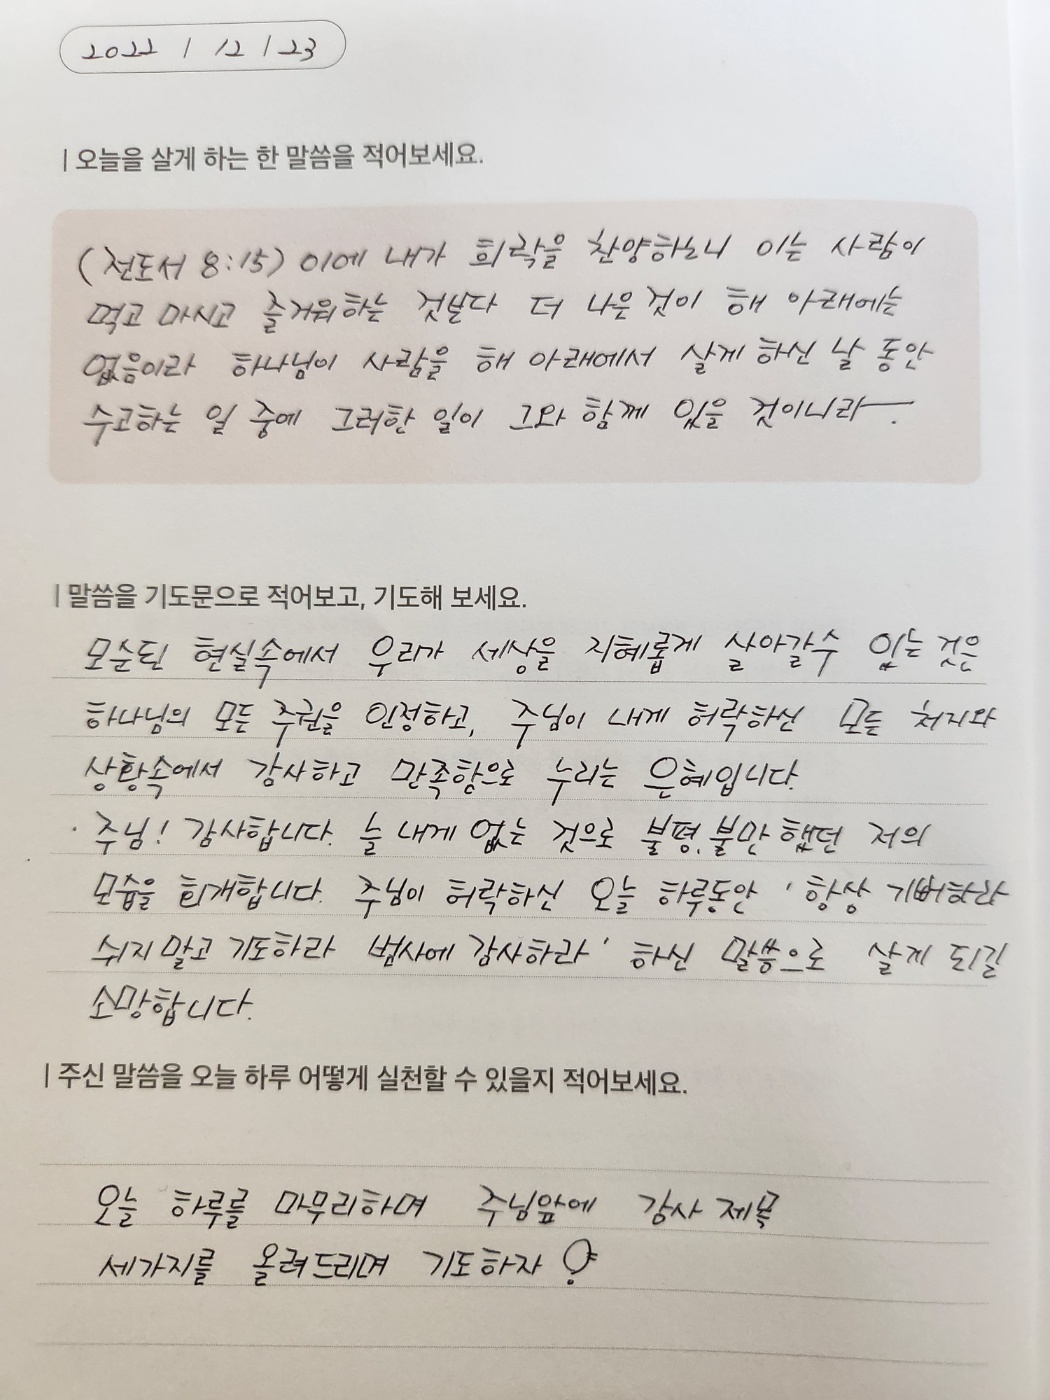 2022 / 12 / 23
오늘을 살게 하는 한 말씀을 적어보세요.
(전도서 8:15) 이에 내가 희락을 찬양하노니 이는 사람이
먹고 마시고 즐거워하는 것보다 더 나은 것이 해 아래에는
없음이라 하나님이 사람을 해 아래에서 살게 하신 날 동안
수고하는 일 중에 그러한 일이 그와 함께 있을 것이니라.
말씀을 기도문으로 적어보고, 기도해 보세요.
모순된 현실속에서 우리가 세상을 지혜롭게 살아갈수 있는 것은
하나님의 모든 주권을 인정하고, 주님이 내게 허락하신 모든 처지와
상황속에서 감사하고 만족함으로 누리는 은혜입니다.
· 주님! 감사합니다. 늘 내게 없는 것으로 불평.불만 했던 저의
모습을 회개합니다. 주님이 허락하신 오늘 하루동안 '항상 기뻐하라
쉬지 말고 기도하라 범사에 감사하라' 하신 말씀으로 살게 되길
소망합니다.
주신 말씀을 오늘 하루 어떻게 실천할 수 있을지 적어보세요.
오늘 하루를 마무리하며 주님앞에 감사 제목
세가지를 올려드리며 기도하자!